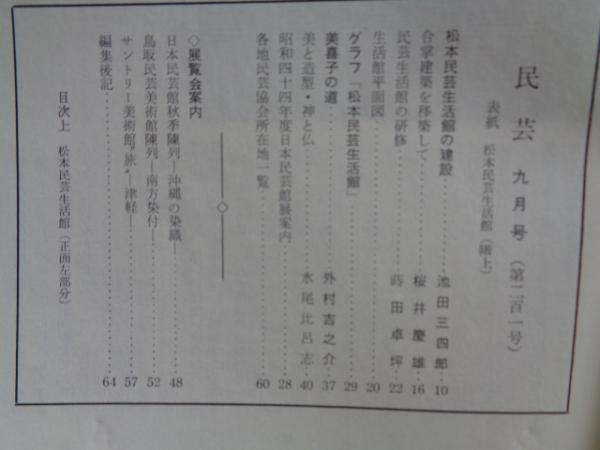 民芸 九月号 (第二百一号)
表紙 松本民芸生活館 (階上)
松本民芸生活館の建設 池田三四郎 10
合掌建築を移築して 桜井慶雄 16
民芸生活館の研修 蒔田卓坪 22
生活館平面図 20
グラフ「松本民芸生活館」 29
美喜子の道 外村吉之介 37
美と造型・神と仏 水尾比呂志 40
昭和四十四年度日本民芸館展案内 28
各地民芸協会所在地一覧 60
◇展覧会案内
日本民芸館秋季陳列―沖縄の染織― 48
鳥取民芸美術館陳列―南方染付― 52
サントリー美術館〝旅〟―津軽― 57
編集後記 64
目次上 松本民芸生活館 (正面左部分)